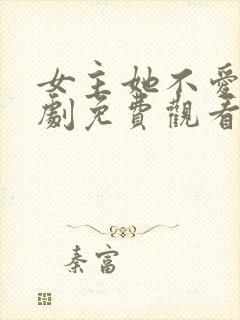 女主她不愛
劇免費觀看
秦富